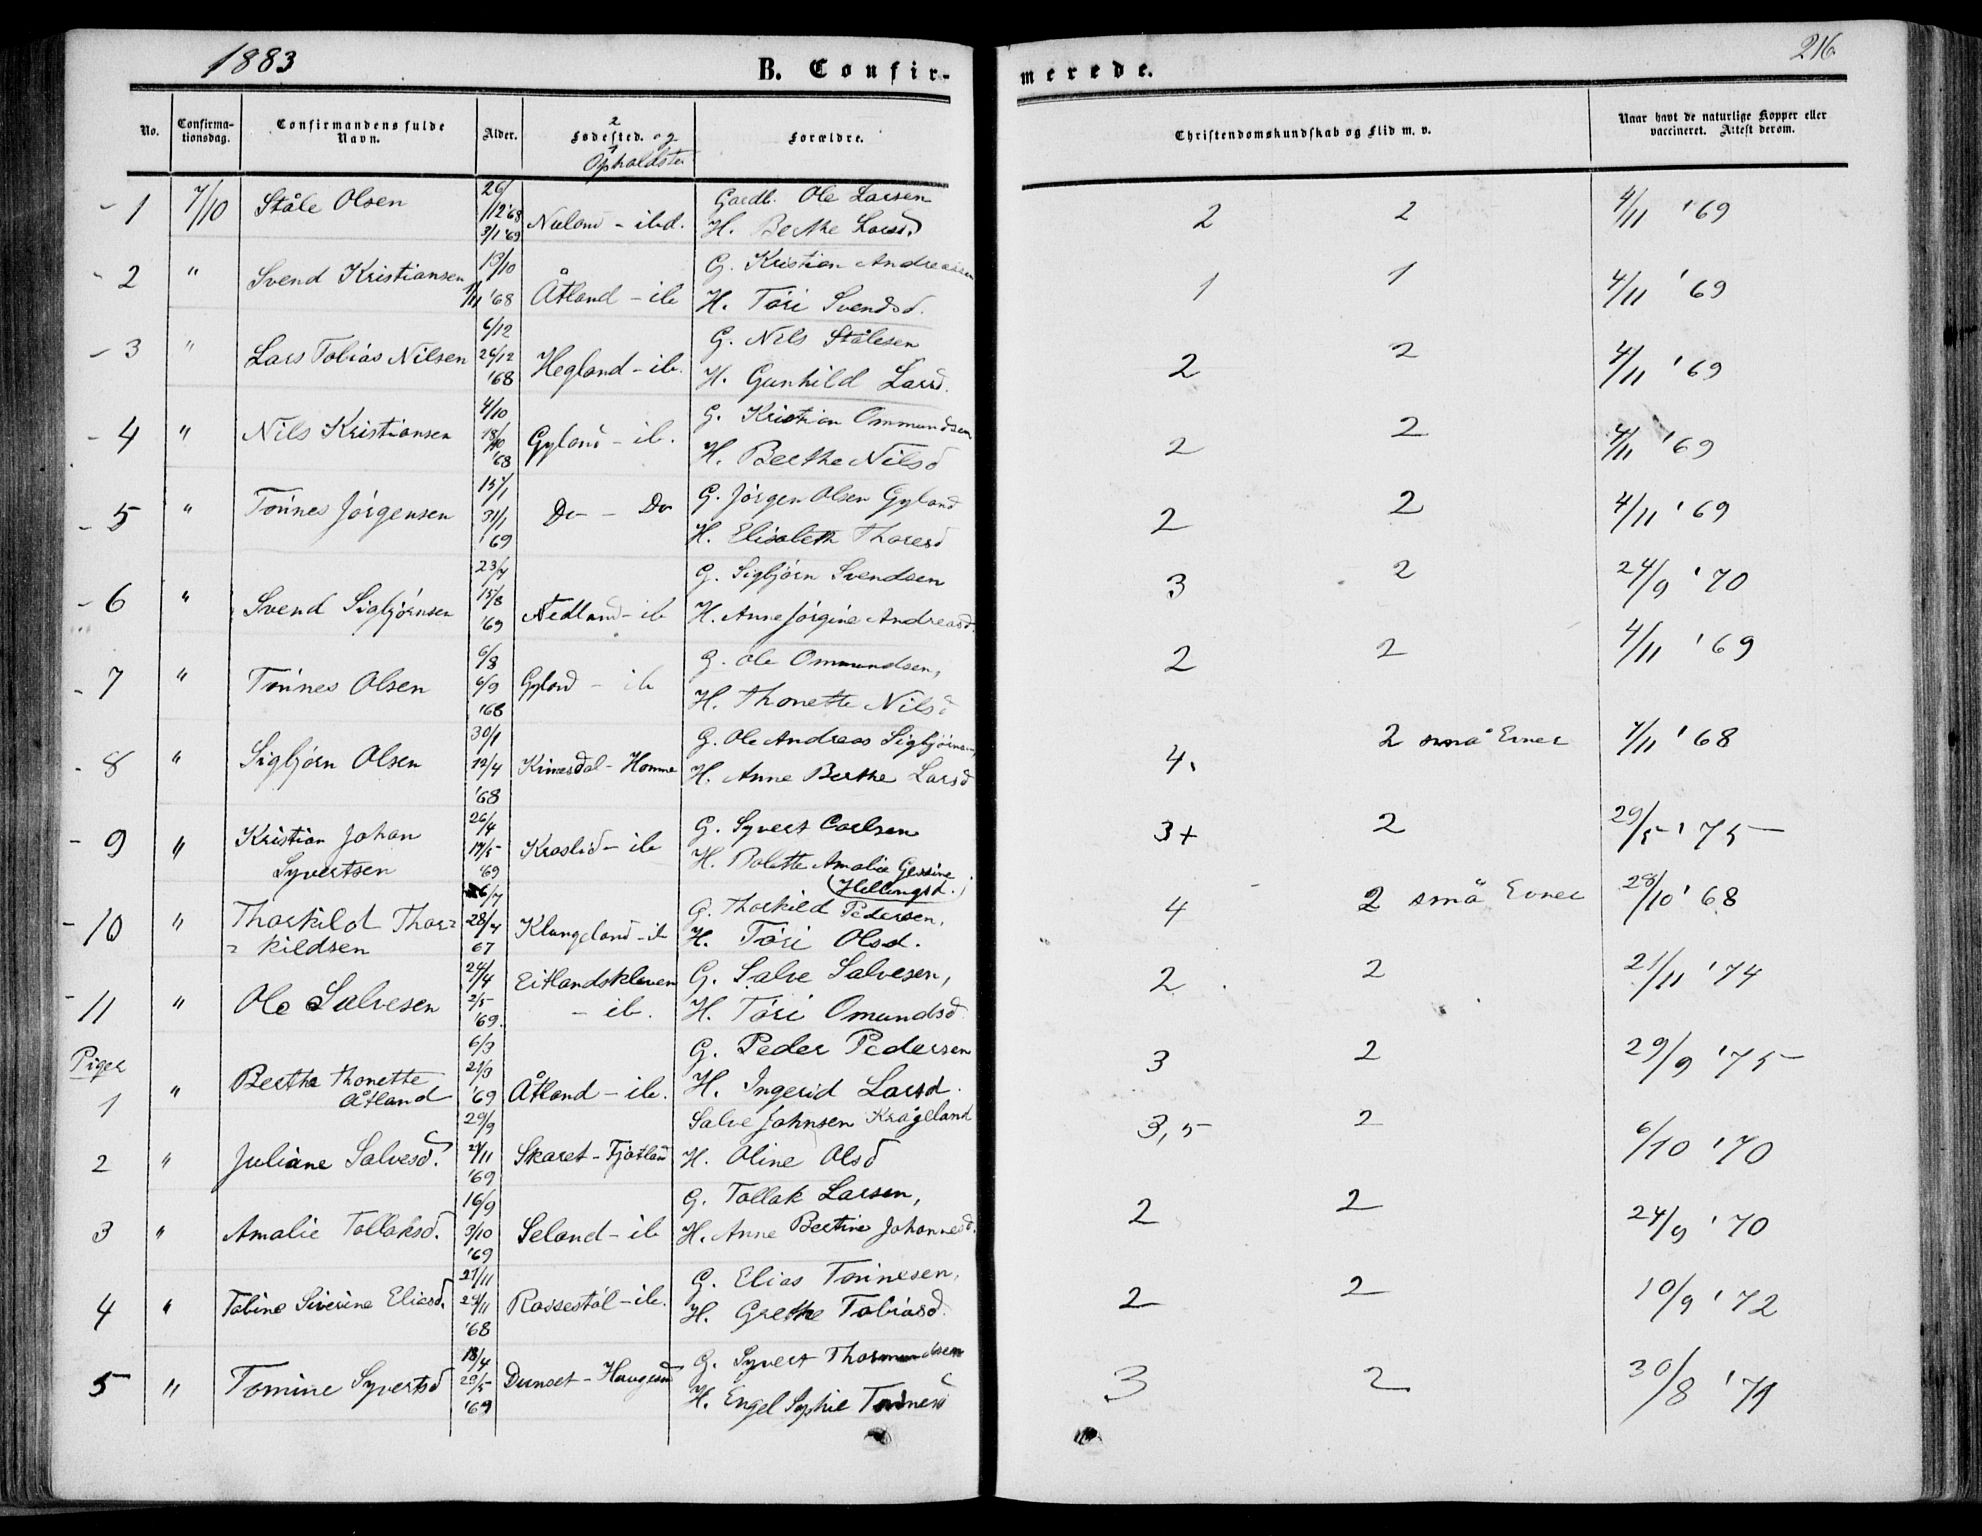 1883
B. Confir-
merede.
216
No.
Confirma-
tionsdag.
Confirmandens fulde
Navn.
Alder.
2
Fødested. og
1
Opholdste
Forældre.
Christendomskundskab og Flid m. v.
Naar havt de naturlige Kopper eller
vaccineret. Attest derom.
- 1 7/10 Ståle Olsen 26/12 '68 3/1 '69 Nuland - ibd. Gaedb. Ole Larsen
H. Berthe Larsd. 2 2 4/11 '69
- 2 " Svend Kristiansen 13/10 1/11 '68 Åtland - ib G. Kristian Andreassen
H. Töri Svendsd. 1 1 4/11 '69
- 3 " Lars Tobias Nilsen 6/12 26/12 '68 Hegland - ib. G. Nils Stålesen
H. Gunhild Larsd. 2 2 4/11 '69
- 4 " Nils Kristiansen 4/10 18/10 '68 Gyland - ib. G. Kristian Ommundsen
H. Berthe Nilsd 2 2 4/11 '69
- 5 " Tönnes Jörgensen 15/1 31/1 '69 Do - Do G. Jörgen Olsen Gyland
H. Elisabeth Thoresd 2 2 4/11 '69
- 6 " Svend Sigbjörnsen 23/7 15/8 '69 Nedland - ib G. Sigbjörn Svendsen
H. Anne Jörgine Andreasd. 3 2 24/9 '70
- 7 " Tönnes Olsen 6/8 6/9 '68 Gyland - ib G. Ole Ommundsen,
H. Thonette Nilsd 2 2 4/11 '69
- 8 " Sigbjörn Olsen 30/1 12/4 '68 Kinnsdal - Homme G. Ole Andreas Sigbjörnsen,
H. Anne Berthe Larsd 4. 2 små Evner 7/11 '68
- 9 " Kristian Johan
Syvertsen 26/4 17/5 '69 Kraslid - ib G. Syvert Carlsen
H. Bolette Amalie Gessine
(Hellingsd.) 3+ 2 29/5 '75
- 10 " Thorkild Thor=
= kildsen 6/7 28/7 67 Klungeland - ib G. Thorkild Pedersen,
H. Töri Olsd. 4 2 små Evner 28/10 '68
- 11 " Ole Salvesen 24/4 2/5 '69. Eitlandskleven
- ib. G. Salve Salvesen,
H. Töri Omundsd 2 2 21/11 '74
Piger
1 " Berthe Thonette
Åtland 6/3 21/3 '69 Åtland - ib. G. Peder Pedersen
H. Ingerid Larsd. 3 2 29/9 '75
2 " Juliane Salvesd. 29/9 21/11 '69 Skaret - Fjotland Salve Johnsen Krågeland
H. Oline Olsd 3,5 2 6/10 '70
3 " Amalie Tollaksd. 16/9 3/10 '69 Seland - ib G. Tollak Larsen,
H. Anne Bertine Johannesd. 2 2 24/9 '70
4 " Tobine Siverine Eliasd. 21/11 29/11 '68 Rossestöl - ib. G. Elias Tönnesen,
H. Grethe Tobiasd. 2 2 10/9 '72
5 " Tomine Syvertsd 18/4 20/5 '69 Dunset - Haugesd G. Syvert Thormundsen
H. Engel Sophie Tönnesd 3 2 30/8 '71